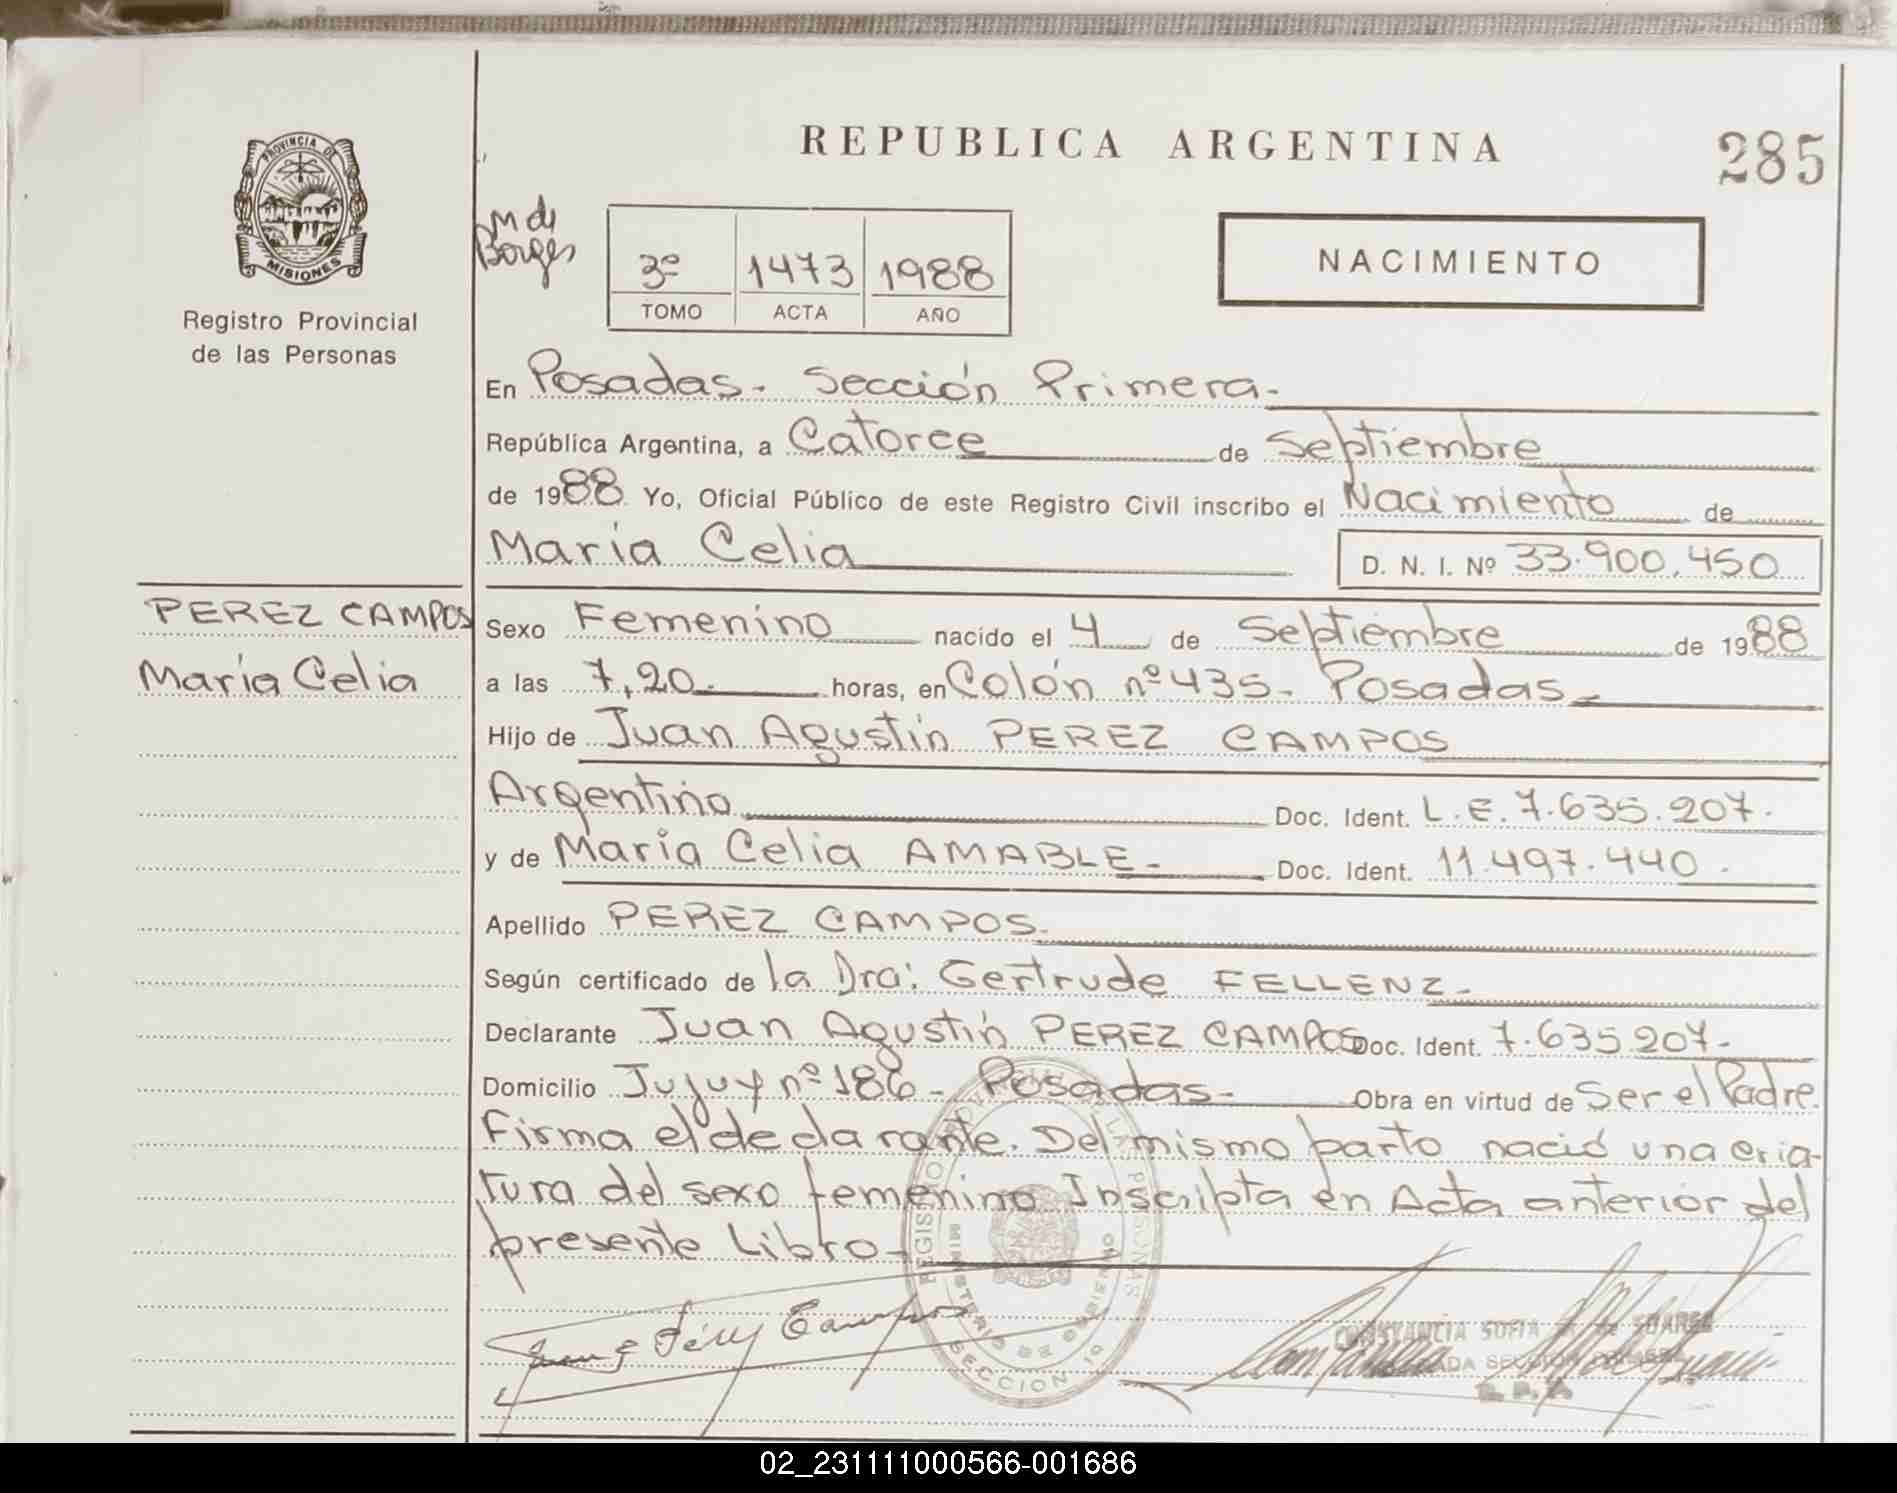 REPUBLICA ARGENTINA
285
PROVINCIA DE
MISIONES
Registro Provincial
de las Personas
M de
Borges
3º 1473 1988
TOMO ACTA AÑO
NACIMIENTO
En Posadas - Sección Primera -
República Argentina, a Catorce de Septiembre
de 1988 Yo, Oficial Público de este Registro Civil inscribo el Nacimiento de
María Celia
D. N. I. Nº 33.900.450
PEREZ CAMPOS
María Celia
Sexo Femenino nacido el 4 de Septiembre de 1988
a las 7,20 - horas, en Colón nº 435 - Posadas -
Hijo de Juan Agustín PEREZ CAMPOS
Argentino Doc. Ident. L.E. 7.635.207.
y de María Celia AMABLE - Doc. Ident. 11.497.440 .
Apellido PEREZ CAMPOS.
Según certificado de la Dra: Gertrude FELLENZ -
Declarante Juan Agustín PEREZ CAMPOS Doc. Ident. 7.635.207 -
Domicilio Jujuy nº 186 - Posadas - Obra en virtud de Ser el Padre.
Firma el declarante. Del mismo parto nació una cria-
tura del sexo femenino Inscripta en Acta anterior del
presente Libro -
REGISTRO PROVINCIAL DE LAS PERSONAS
MINISTERIO DE GOBIERNO
SECCION 1º
CONSTANCIA SOFIA DE SUAREZ
SECCION PRIMERA
R. P. P.
02_231111000566-001686